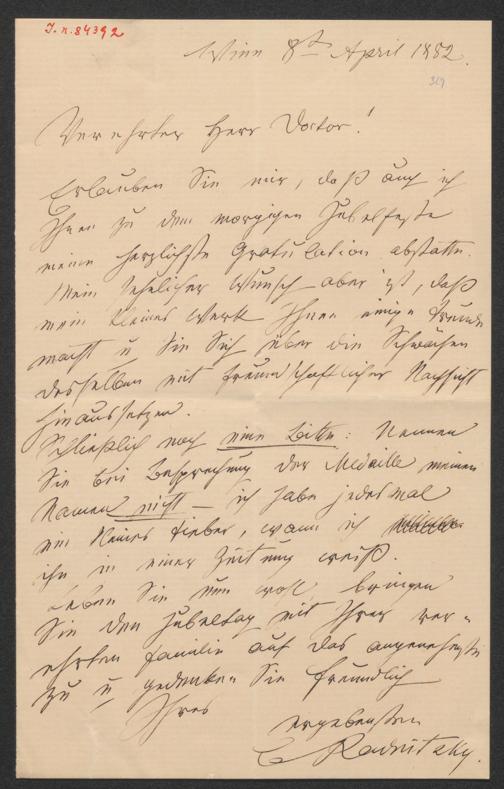 J. N. 84392
Wien 8t April 1882.
319
Verehrter Herr Doctor!
Erlauben Sie mir, daß auch ich
Ihnen zu dem morgigen Jubelfeste
meine herzlichste Gratulation abstatte.
Mein sehnlicher Wunsch aber ist, daß
mein kleines Werk Ihnen einige Freude
macht u Sie Sich über die Schwächen
desselben mit freundschaftlicher Nachsicht
hinaussetzen.
Schließlich noch eine Bitte: Nennen
Sie bei Besprechung der Medaille meinen
Namen nicht – ich habe jedesmal
ein kleines Fieber, wann ich
ihn in einer Zeitung weiß.
Leben Sie nun wohl, bringen
Sie den Jubeltag mit Ihrer ver-
ehrten Familie auf das angenehmste
zu u gedenken Sie freundlich
Ihres
ergebensten
C Radnitzky.